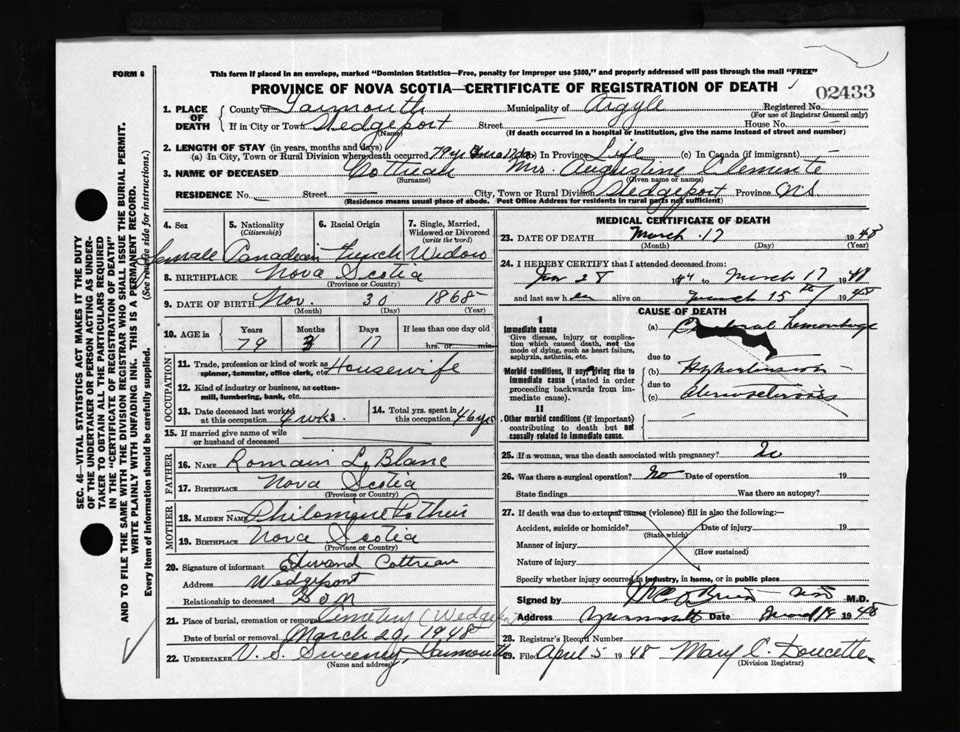 FORM 6
This form if placed in an envelope, marked "Dominion Statistics—Free, penalty for improper use $300," and properly addressed will pass through the mail "FREE"
PROVINCE OF NOVA SCOTIA—CERTIFICATE OF REGISTRATION OF DEATH
02433
1. PLACE OF DEATH
County of Yarmouth Municipality of Argyle Registered No.
(For use of Registrar General only)
If in City or Town Wedgeport Street House No.
(Name) (If death occurred in a hospital or institution, give the name instead of street and number)
2. LENGTH OF STAY (in years, months and days)
(a) In City, Town or Rural Division where death occurred 79 yrs 17 da. In Province Life (c) In Canada (if immigrant)
3. NAME OF DECEASED Cottreau Mrs. Augustine Clemente
(Surname) (Given name or names)
RESIDENCE No. Street City, Town or Rural Division Wedgeport Province N S
(Residence means usual place of abode. Post Office Address for residents in rural parts not sufficient)
4. Sex 5. Nationality (Citizenship) 6. Racial Origin 7. Single, Married, Widowed or Divorced (write the word)
Female Canadian French Widow
8. BIRTHPLACE Nova Scotia
(Province or Country)
9. DATE OF BIRTH Nov. 30 1868
(Month) (Day) (Year)
10. AGE in Years Months Days If less than one day old
79 3 17 hrs. or min.
OCCUPATION
11. Trade, profession or kind of work as spinner, teamster, office clerk, etc. Housewife
12. Kind of industry or business, as cotton-mill, lumbering, bank, etc.
13. Date deceased last worked at this occupation 4 wks. 14. Total yrs. spent in this occupation 46 yrs
15. If married give name of wife or husband of deceased
FATHER
16. NAME Romain LeBlanc
17. BIRTHPLACE Nova Scotia
(Province or Country)
MOTHER
18. MAIDEN NAME Philomene Pothier
19. BIRTHPLACE Nova Scotia
(Province or Country)
20. Signature of informant Edward Cottreau
Address Wedgeport
Relationship to deceased Son
21. Place of burial, cremation or removal Cemetery (Wedgeport)
Date of burial or removal March 20, 1948
22. UNDERTAKER V. S. Sweeney, Yarmouth
(Name and address)
MEDICAL CERTIFICATE OF DEATH
23. DATE OF DEATH March 17 1948
(Month) (Day) (Year)
24. I HEREBY CERTIFY that I attended deceased from:
Jan 28 to March 17 1948
and last saw alive on March 15th 1948
CAUSE OF DEATH
I
Immediate cause
Give disease, injury or complication which caused death, not the mode of dying, such as heart failure, asphyxia, asthenia, etc.
(a) Cerebral hemorrhage
due to
Morbid conditions, if any, giving rise to immediate cause (stated in order proceeding backwards from immediate cause).
(b) Hypertension
due to
(c) Arteriosclerosis
II
Other morbid conditions (if important) contributing to death but not causally related to immediate cause.
25. If a woman, was the death associated with pregnancy? No
26. Was there a surgical operation? No Date of operation 19
State findings Was there an autopsy?
27. If death was due to external causes (violence) fill in also the following:—
Accident, suicide or homicide? Date of injury 19
(State which)
Manner of injury
(How sustained)
Nature of injury
Specify whether injury occurred in industry, in home, or in public place
Signed by M.D.
Address Yarmouth Date 1948
28. Registrar's Record Number
29. Filed April 5 1948 Mary C. Doucette
(Division Registrar)
SEC. 46—VITAL STATISTICS ACT MAKES IT THE DUTY
OF THE UNDERTAKER OR PERSON ACTING AS UNDER-
TAKER TO OBTAIN ALL THE PARTICULARS REQUIRED
IN THE "CERTIFICATE OF REGISTRATION OF DEATH"
AND TO FILE THE SAME WITH THE DIVISION REGISTRAR WHO SHALL ISSUE THE BURIAL PERMIT.
WRITE PLAINLY WITH UNFADING INK. THIS IS A PERMANENT RECORD.
Every item of information should be carefully supplied. (See reverse side for instructions.)